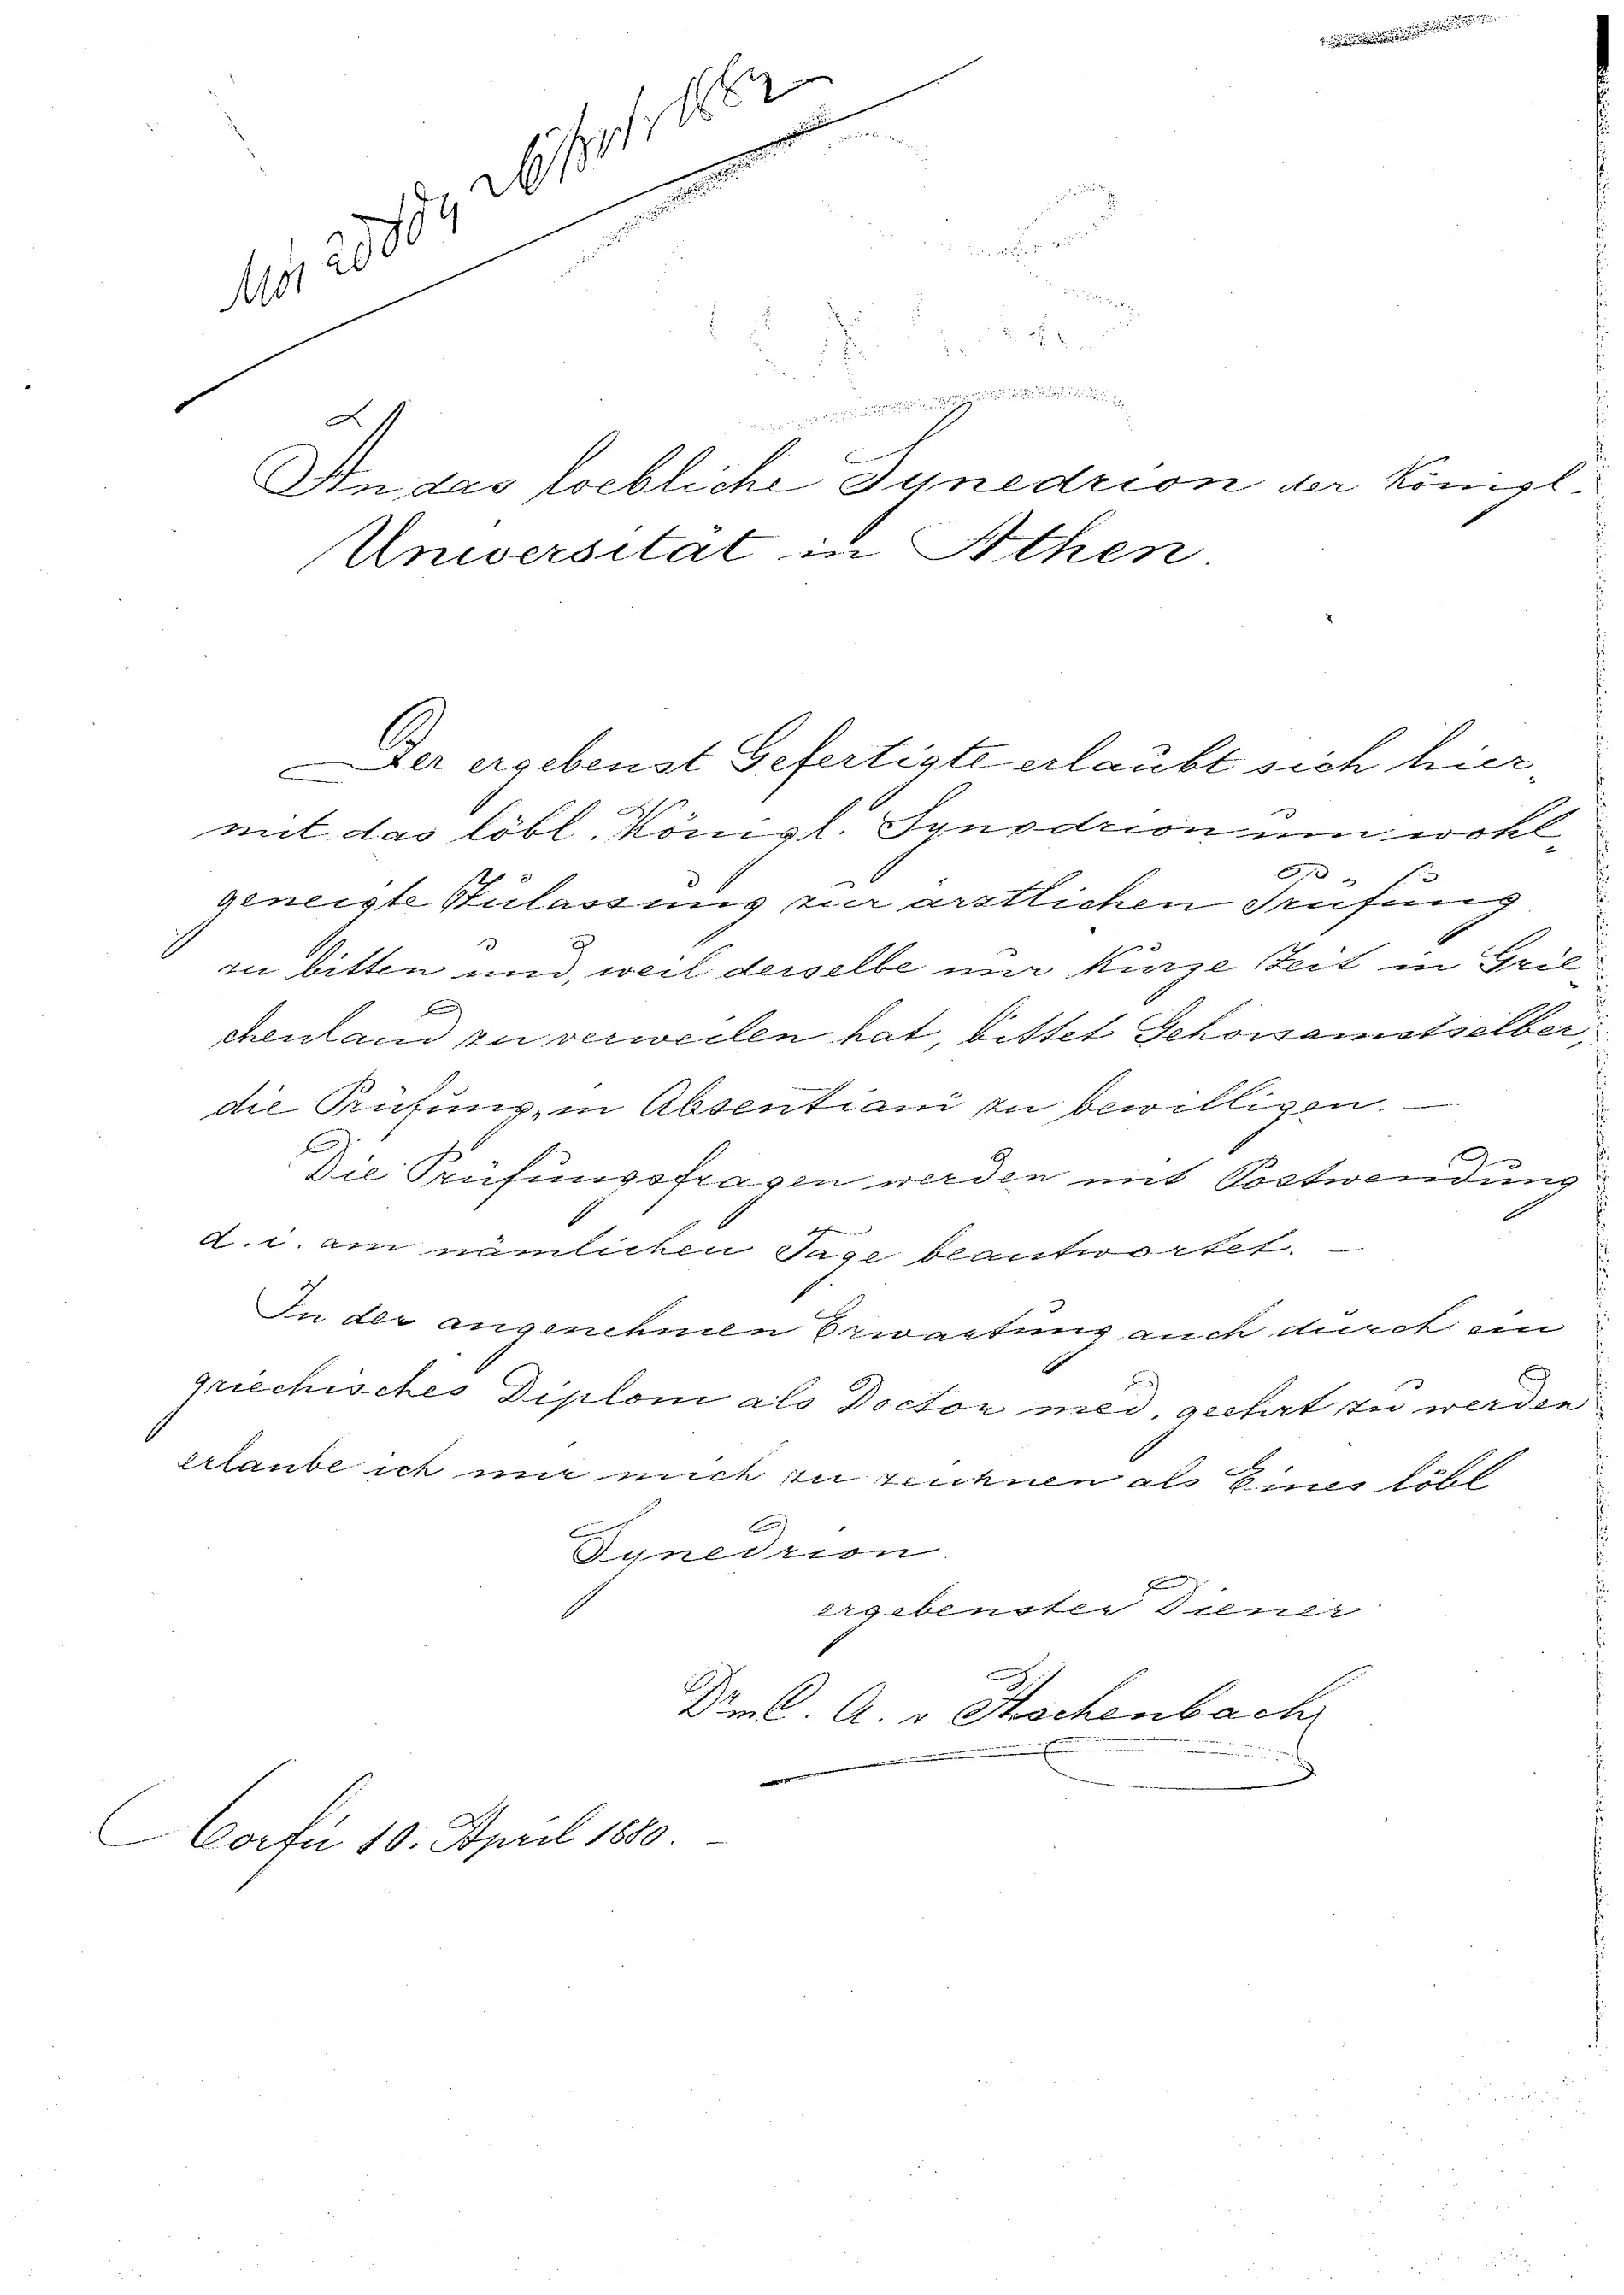 An das loebliche Synedrion der Königl.
Universität in Athen.
Der ergebenst Gefertigte erlaubt sich hier-
mit das löbl. Königl. Synedrion um wohl-
geneigte Zulassung zur ärztlichen Prüfung
zu bitten und, weil derselbe nur kurze Zeit in Grie-
chenland zu verweilen hat, bittet Gehorsamstselber,
die Prüfung „in Absentiam zu bewilligen. —
Die Prüfungsfragen werden mit Postwendung
d. i. am nämlichen Tage beantwortet. —
In der angenehmen Erwartung auch durch ein
griechisches Diplom als Doctor med. geehrt zu werden
erlaube ich mir mich zu zeichnen als Eines löbl
Synedrion
ergebenster Diener
A. v
Corfu 10. April 1880. —